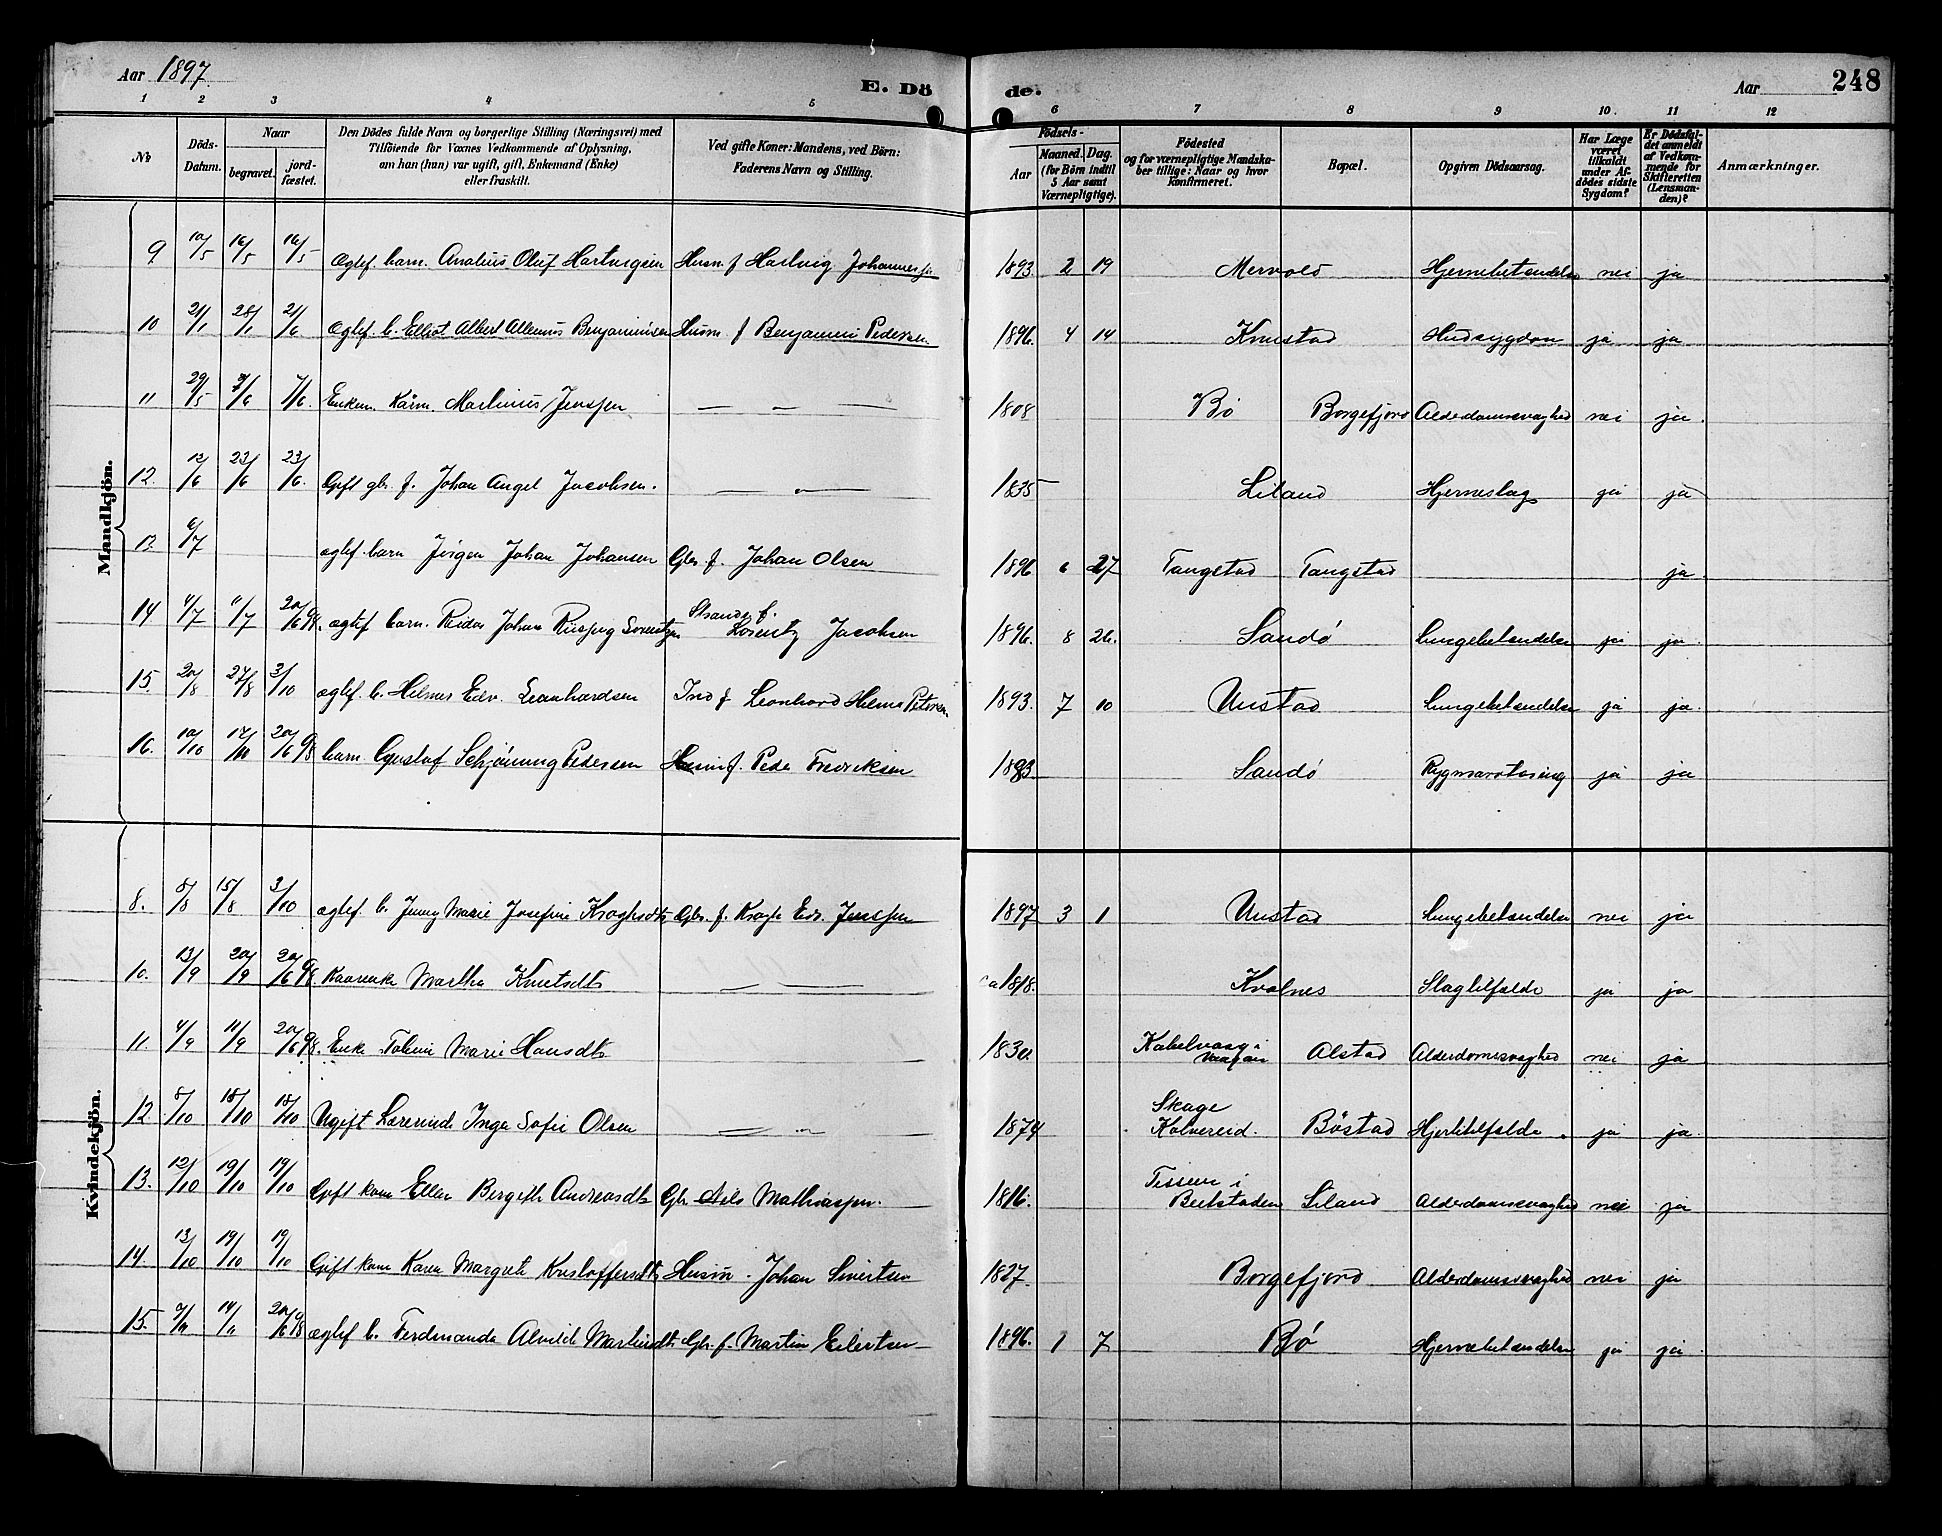 Aar 1897. E. Dö de. Aar 248
1 2 3 4 5 6 7 8 9 10. 11 12
No
Döds-Datum.
Naar
begravet.
jord-fæstet.
Den Dödes fulde Navn og borgerlige Stilling (Næringsvei) med
Tilföiende for Voxnes Vedkommende af Oplysning,
om han (hun) var ugift, gift, Enkemand (Enke)
eller fraskilt.
Ved gifte Koner: Mandens, ved Börn:
Faderens Navn og Stilling.
Födsels-
Aar
Maaned. Dag.
(for Börn indtil
5 Aar samt
Værnepligtige).
Födested
og for værnepligtige Mandska-
ber tillige: Naar og hvor
konfirmeret.
Bopæl.
Opgiven Dödsaarsag.
Har Læge
været
tilkaldt
under Af-
dödes sidste
Sygdom?
Er Dödsfal-
det anmeldt
af Vedkom-
mende for
Skifteretten
(Lensman-
den)?
Anmærkninger.
Mandkjön.
9 10/5 16/5 16/5 ægtef. barn. Analius Oluf Hartvigsen Husm. f Hartvig Johannes 1893 2 19 Mervold Hjernebetændelse nei ja
10 21/1 28/1 2/6 ægtef. b. Ellert Albert Benjaminsen Husm. f Benjamin Pedersen. 1896. 4 14 Knustad Hudsygdom ja ja
11 29/5 7/6 7/6 Enkem. Kårm. Martinus Jenssen — — — 1808 Bö Borgefjord Alderdomssvaghed nei ja.
12. 12/6 23/6 23/6 Gift gbr. f. Johan Angel Jacobsen. — „ — 1835 Liland Hjerneslag ja ja
13. 6/7 ægtef. barn Jörgen Johan Johansen Gbr. f. Johan Olsen 1896 6 27 Tangstad Tangstad ja.
14 4/7 11/7 20/6 98. ægtef barn. Reidar Johan Lorentzen Strands. f. Lorentz Jacobsen 1896. 8 26. Sandö Lungebetændelse ja ja.
15. 20/8 27/8 3/10 ægtef. b. Hilmar Edv. Leonhardsen Ind f Leonhard Hilmar Petersen 1893. 7 10 Unstad Lungebetændelse ja ja.
16. 10/10 17/10 20/6 98 barn. Gustaf Schjönning Pedersen Husm f. Peder Fredriksen 1883 Sandö Rygmarvstæring ja ja
Kvindekjön.
8. 5/8 15/8 3/10 ægtef. b. Jenny Marie Josefine Kraghsdt. Gbr. f. Kragh Edv. Jenssen 1897 3 1 Unstad Lungebetændelse nei ja
10. 13/9 20/9 20/6 98. Martha Knutsdt. — „ — ca 1818. Kvalnes Slagtilfælde ja ja
11. 4/9 11/9 20/6 98. Enke Marie Hansdt. 1830. Kabelvaag i Vaagan Alstad Alderdomssvaghed nei ja
12 5/10 18/10 18/10 Ugift Lærerind Inga Sofie Olsen — „ — 1874 Skage Kolvereid. Böstad Hjertetilfælde. ja ja.
13. 12/10 19/10 19/10 Gift kone Ellen Bergith Andreasdt. Gbr. Nils Mathiassen. 1816. i Beitstaden Liland Alderdomssvaghed nei ja
14. 13/10 19/10 19/10 Gift kone Karen Margrete Kristoffersdt. Husm. Johan Sivertsen 1827. Borgefjord Alderdomssvaghed nei ja
15. 7/11 14/11 20/6 98 ægtef b. Ferdinanda Alvilde Martinsdt. Gbr. f. Martin Eilertsen 1896. 1 7 Bö Hjernebetændelse ja ja.